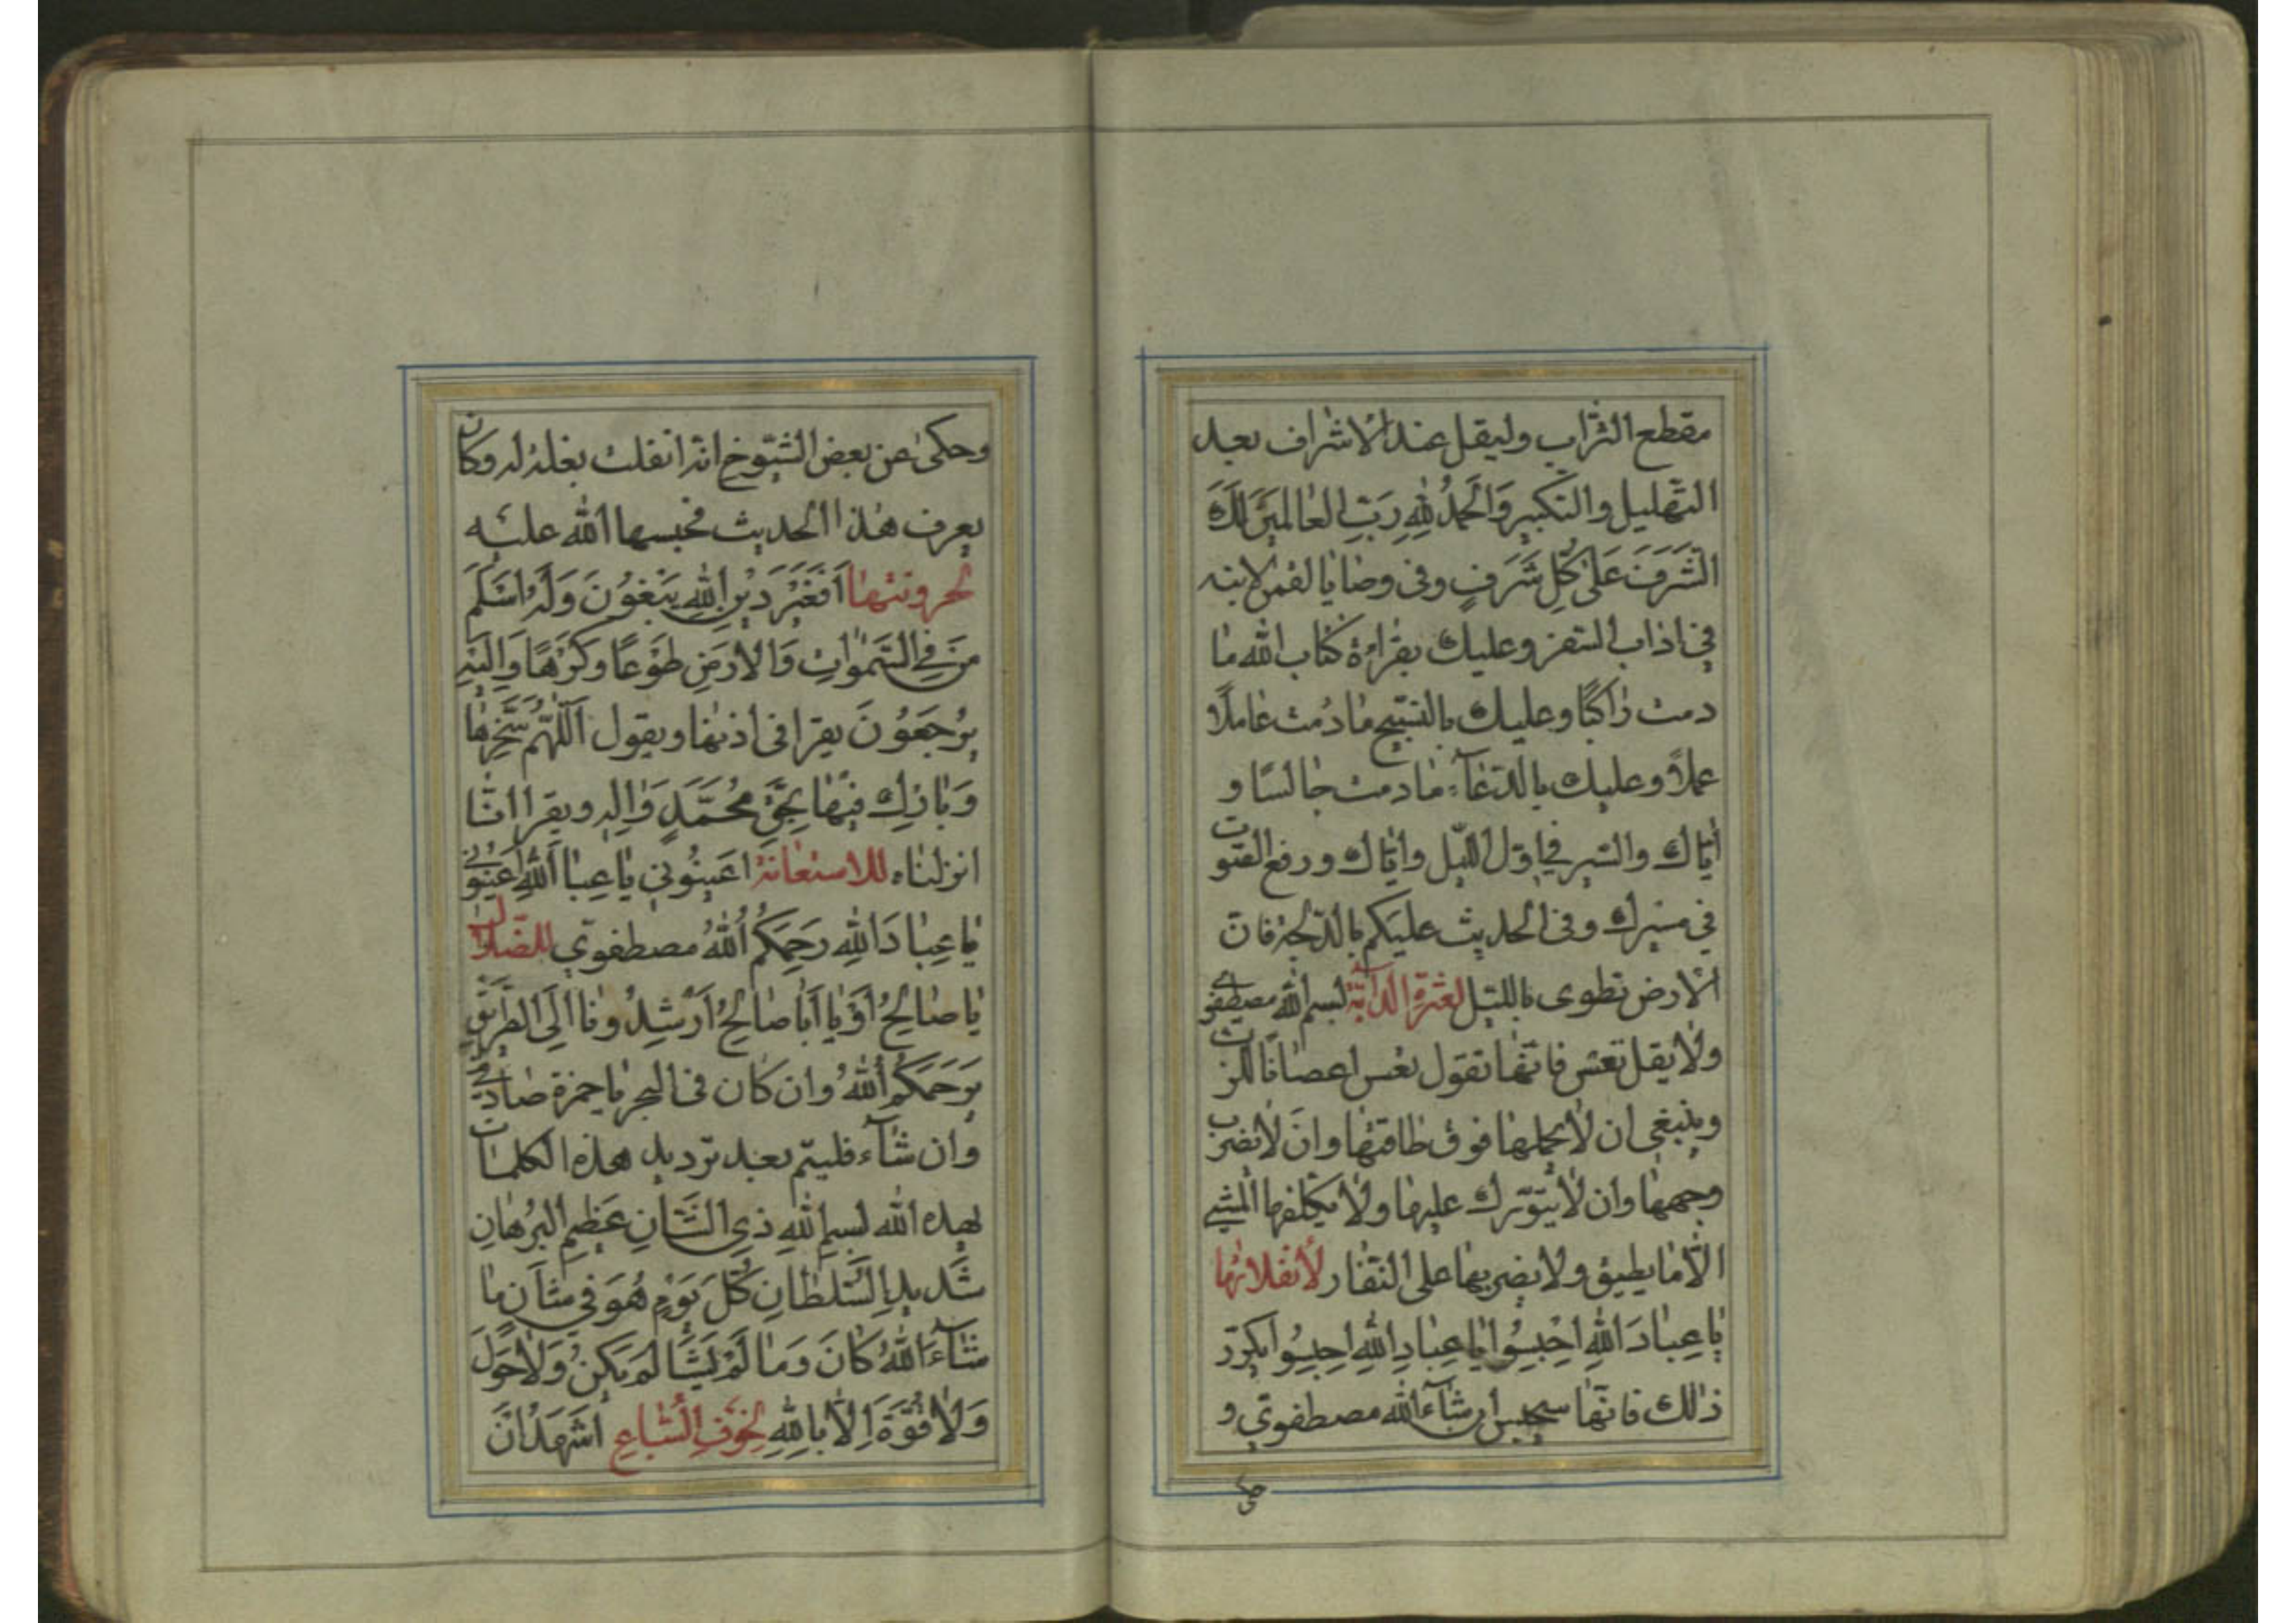 مقطع التراب وليقل عند الاشراف بعد
التهليل والتكبير وَالْحَمْدُ لِلّٰهِ رَبِّ الْعالَمينَ لَكَ
الشَّرَفَ عَلىٰ كُلِّ شَرَفٍ وفى وصايا لقمن لابنه
في اداب السفر وعليك بقراءة كتاب الله ما
دمت راكبًا وعليك بالتسبيح مادُمت عاملًا
عملًا وعليك بالدعآء مادمت جالسًا و
اياك والسير في اول الليل واياك ورفع الصوت
في مسيرك وفى الحديث عليكم بالدلجة فان
الارض تطوى بالليل لعثرة الدابة بسم الله مصطفوي
ولا يقل تعس فانها تقول تعس اعصانا للرب
وينبغي ان لا يحملها فوق طاقتها وان لا يضرب
وجهها وان لا يتورك عليها ولا يكلفها المشي
الا ما يطيق ولا يضربها على النفار لأنفلاتها
يا عِبادَ اللهِ احْبِسُوا يا عِبادَ اللهِ احبِسُوا يكرر
ذلك فانها سيحبس ان شآء الله مصطفوي و
حكى
وحكى عن بعض الشيوخ انه انفلت بغلة له وكان
يعرف هذا الحديث فحبسها الله عليه
لحرونتها اَفَغَيْرَ دينِ اللهِ يَبْغُونَ وَلَهُ اَسْلَمَ
مَنْ فِي السَّمٰواتِ وَالْاَرْضِ طَوْعًا وَكَرْهًا وَاِلَيْهِ
يُرْجَعُونَ يقرا فى اذنها ويقول اَللّٰهُمَّ سَخِّرْها
وَبارِك فيها بِحَقِّ مُحَمَّدٍ وَالِهِ ويقرا انا
انزلناه للاستعانة اَعينُوني يا عِبادَ اللهِ اَعينُوني
يا عِبادَ اللهِ رَحِمَكُمُ اللهُ مصطفوي للضلال
يا صالِحُ اَوْ يا اَبا صالِحُ اَرْشِدُونا اِلَى الطَّريقِ
يَرْحَمَكُمُ اللهُ وان كان فى البحر يا حمزة صادقي
وان شآء فليتم بعد ترديد هذه الكلمات
بهذه الله بسم اللهِ ذي الشَّانِ عَظيمِ البُرْهانِ
شَديدِ السُّلْطانِ كُلَّ يَوْمٍ هُوَ في شَاْنٍ ما
شآءَ اللهُ كانَ وَما لَمْ يَشَا لَمْ يَكُنْ وَلا حَوْلَ
وَلا قُوَّةَ اِلّا بِاللهِ لخوف السباع اَشْهَدُ اَنَّ